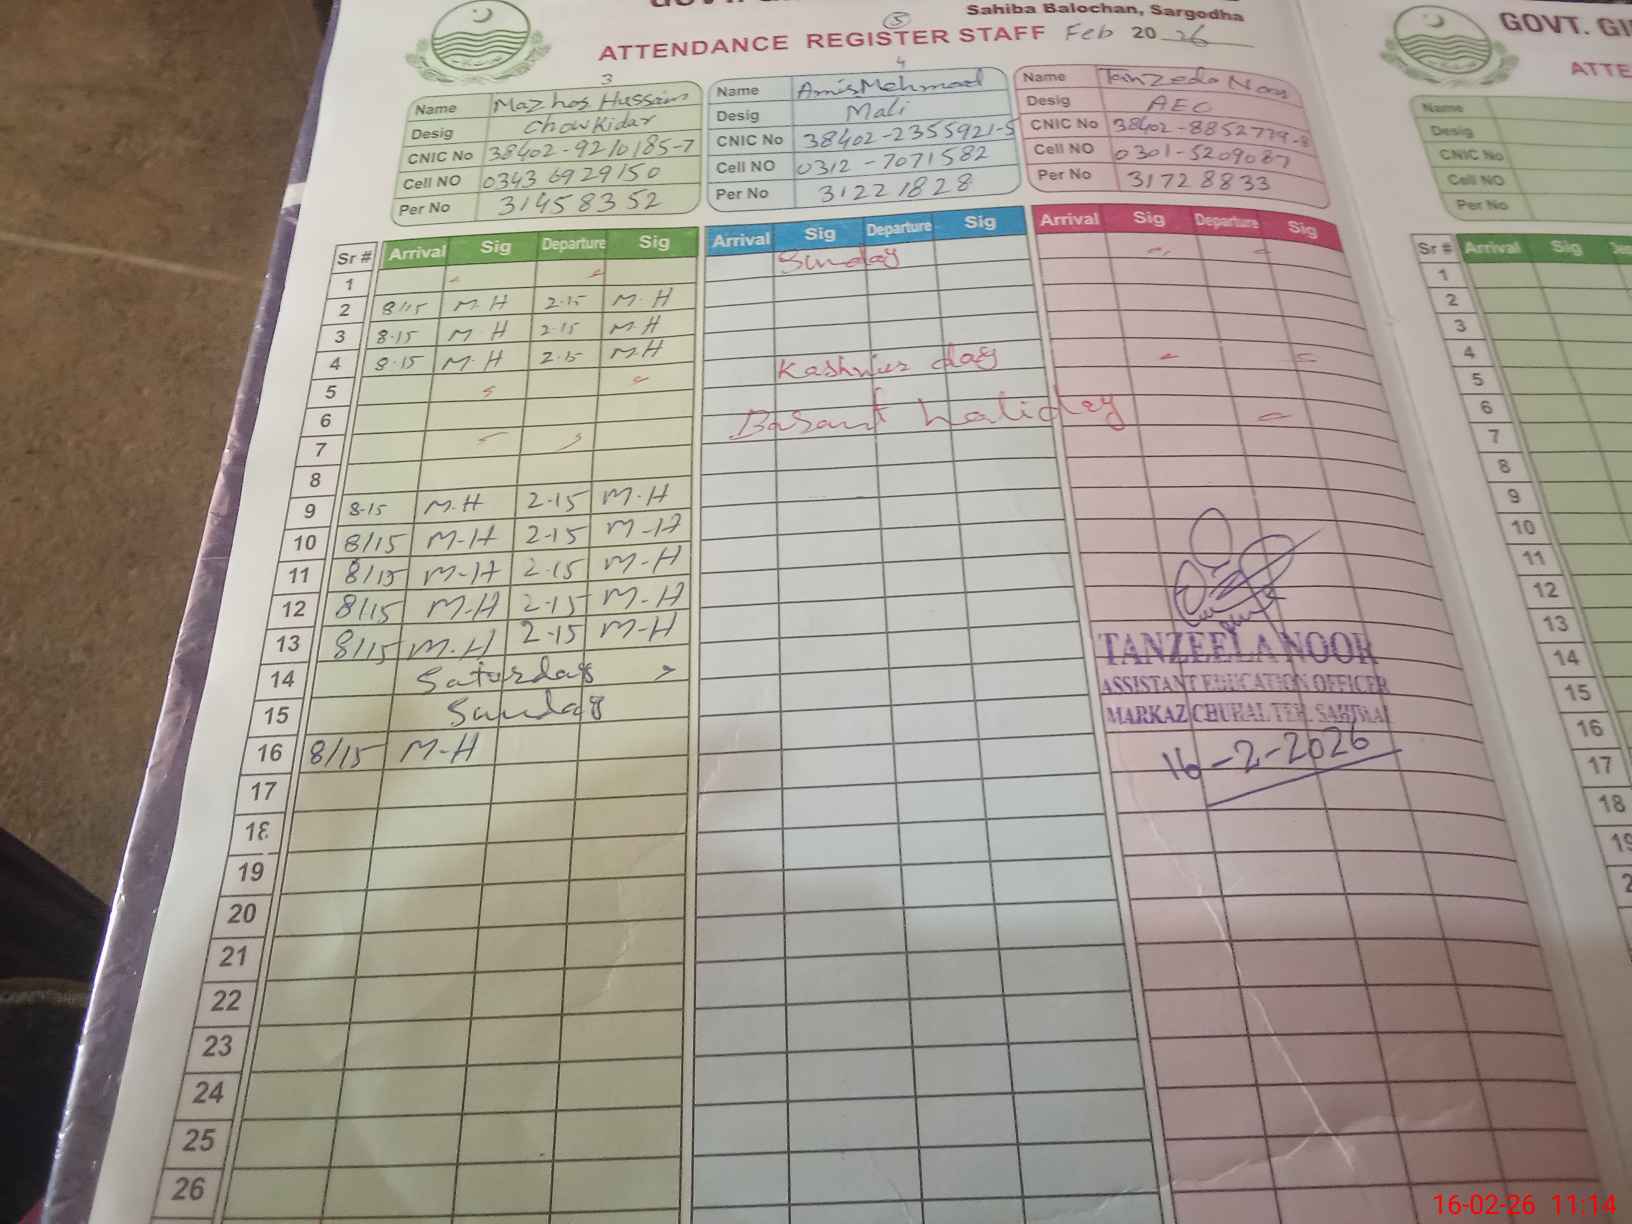 Sahiba Balochan, Sargodha
GOVT. GI
5
ATTENDANCE REGISTER STAFF Feb 2026
ATTE
3
4
Name Mazhos Hussain
Desig Chowkidar
CNIC No 38402-9210185-7
Cell NO 0343 6929150
Per No 31458352
Name Amis Mehmood
Desig Mali
CNIC No 38402-2355921-5
Cell NO 0312-7071582
Per No 31221828
Name Tanzeela Noor
Desig AEO
CNIC No 38402-8852779-8
Cell NO 0301-5209087
Per No 31728833
Name
Desig
CNIC No
Cell NO
Per No
Sr # Arrival Sig Departure Sig Arrival Sig Departure Sig Arrival Sig Departure Sig
Sr # Arrival Sig
1 Sunday
2 8/15 M.H 2.15 M.H
3 8.15 M H 2.15 M.H
4 8.15 M.H 2.15 M.H
5 Kashmir day
6 Basant holiday
7
8
9 8-15 M.H 2.15 M.H
10 8/15 M-H 2.15 M-H
11 8/15 M-H 2.15 M-H
12 8/15 M-H 2.15 M-H
13 8/15 M.H 2.15 M-H
14 Saturday
15 Sunday
16 8/15 M-H
17
18
19
20
21
22
23
24
25
26
TANZEELA NOOR
ASSISTANT EDUCATION OFFICER
MARKAZ CHUHAL TEH. SAHIWAL
16-2-2026
1
2
3
4
5
6
7
8
9
10
11
12
13
14
15
16
17
18
19
2
16-02-26 11:14